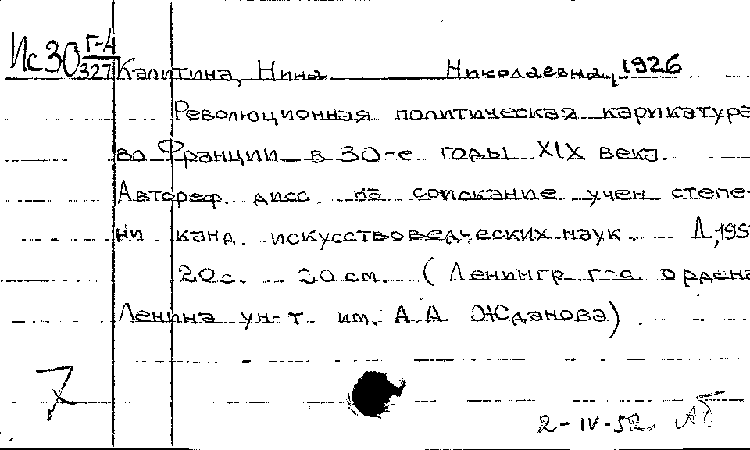 Ис30 Г-4
327
Калитина, Нина Николаевна, 1926
Революционная политическая карикатура
во Франции в 30-е годы XIX века.
Автореф. дисс. на соискание учен степе-
ни канд. искусствоведческих наук. Л, 195
20 с. 20 см. (Ленингр. г-а. ордена
Ленина ун-т. им. А А Жданова).
2-IV-52.